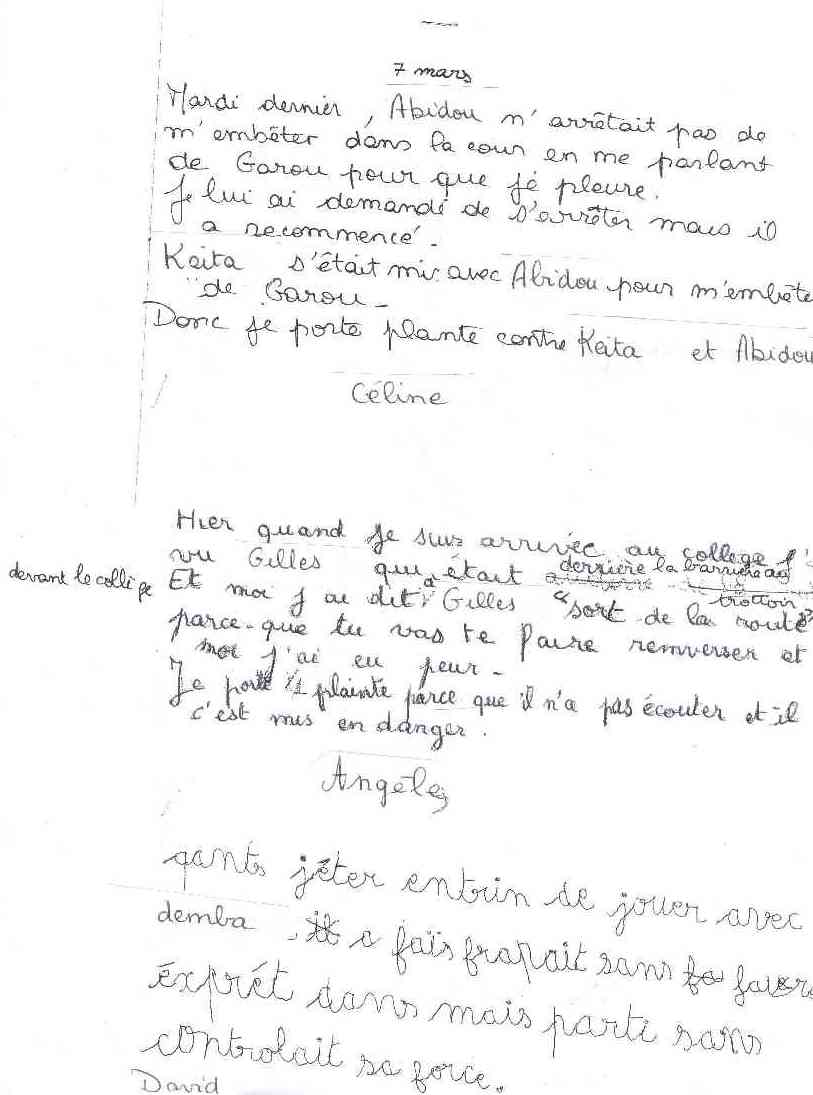 7 mars
Mardi dernier, Abidou n'arrêtait pas de
m'embêter dans la cour en me parlant
de Garou pour que je pleure.
Je lui ai demandé de s'arrêter mais il
a recommencé.
Keita s'était mis avec Abidou pour m'embête
de Garou.
Donc je porte plante contre Keita et Abidou
Céline
Hier quand je suis arrivée au collège j'
vu Gilles qui était derrière la barrière au
trottoir
devant le collige Et moi j'ai dit à Gilles "sort de la route"
parce-que tu vas te faire remverser et
moi j'ai eu peur.
Je porte plainte parce que il n'a pas écouter et il
c'est mis en danger.
Angèle
qants jéter entrin de jouer avec
demba, a faïs frapait sans faver
éxprét dans mais parti sans
controlait sa force.
David